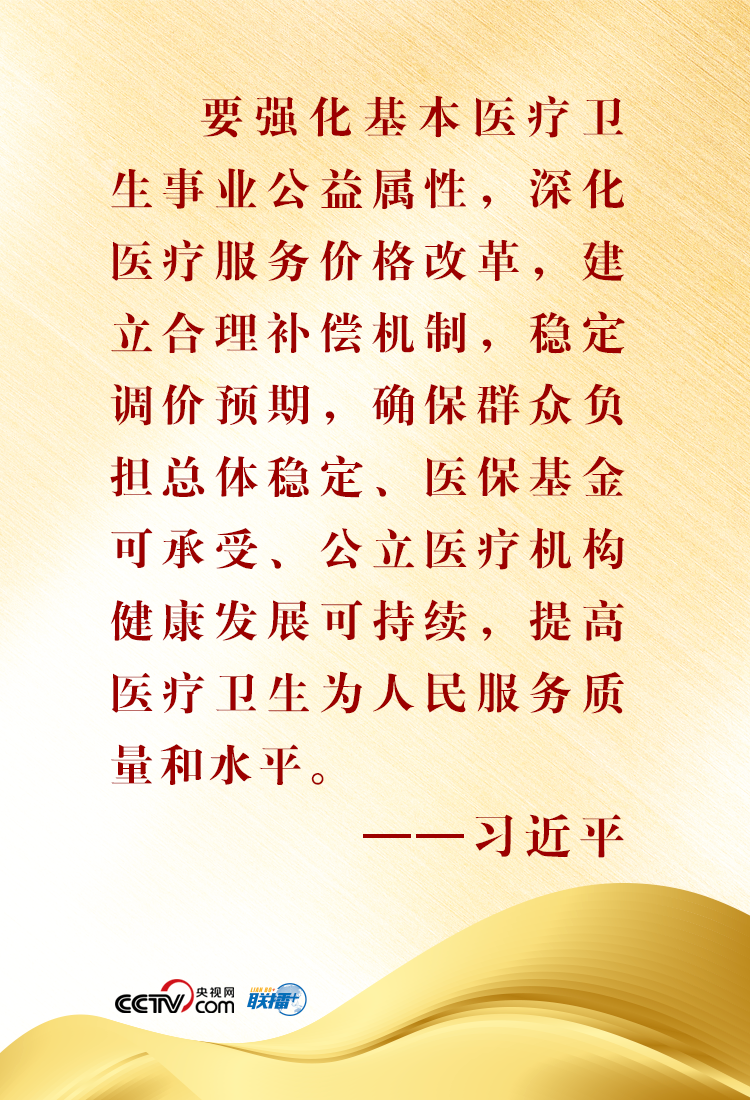 要强化基本医疗卫
生事业公益属性，深化
医疗服务价格改革，建
立合理补偿机制，稳定
调价预期，确保群众负
担总体稳定、医保基金
可承受、公立医疗机构
健康发展可持续，提高
医疗卫生为人民服务质
量和水平。
——习近平
CCTV央视网
com
LIAN BO+
联播+